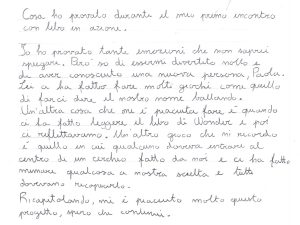 Cosa ho provato durante il mio primo incontro
con libro in azione.
Io ho provato tante emozioni che non saprei
spiegare. Però so di essermi divertito molto e
di aver conosciuto una nuova persona, Paola.
Lei ci ha fatto fare molti giochi come quello
di farci dire il nostro nome ballando.
Un'altra cosa che mi è piaciuta fare è quando
ci ha fatto leggere il libro di Wonder e poi
ci riflettavamo. Un'altro gioco che mi ricordo
è quello in cui qualcuno doveva entrare al
centro di un cerchio fatto da noi e ci ha fatto
mimare qualcosa a nostra scelta e tutti
dovevano ricopiarlo.
Ricapitolando, mi è piaciuto molto questo
progetto, spero che continui.